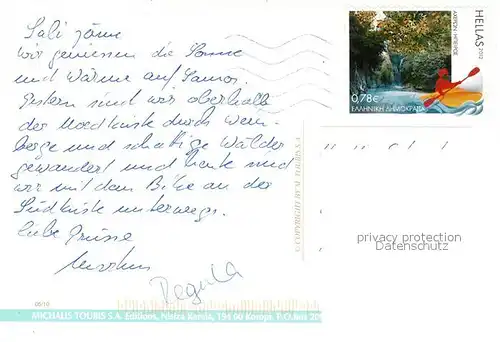 Sali zäme
wir geniessen die Sonne
und Wärme auf Samos.
Gestern sind wir oberhalb
der Nordküste durch Wein-
berge und schattige Wälder
gewandert und heute sind
wir mit dem Bike an der
Südküste unterwegs.
Liebe Grüsse
Regula
HELLAS 2012
0,78€
ΕΛΛΗΝΙΚΗ ΔΗΜΟΚΡΑΤΙΑ
privacy protection
Datenschutz
05/10
MICHALIS TOUBIS S.A. Editions, Nisiza Karela, 194 00 Koropi, P.O.Box